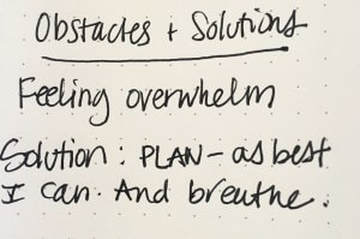 Obstacles + Solutions
Feeling overwhelm
Solution: PLAN - as best
I can. And breathe.